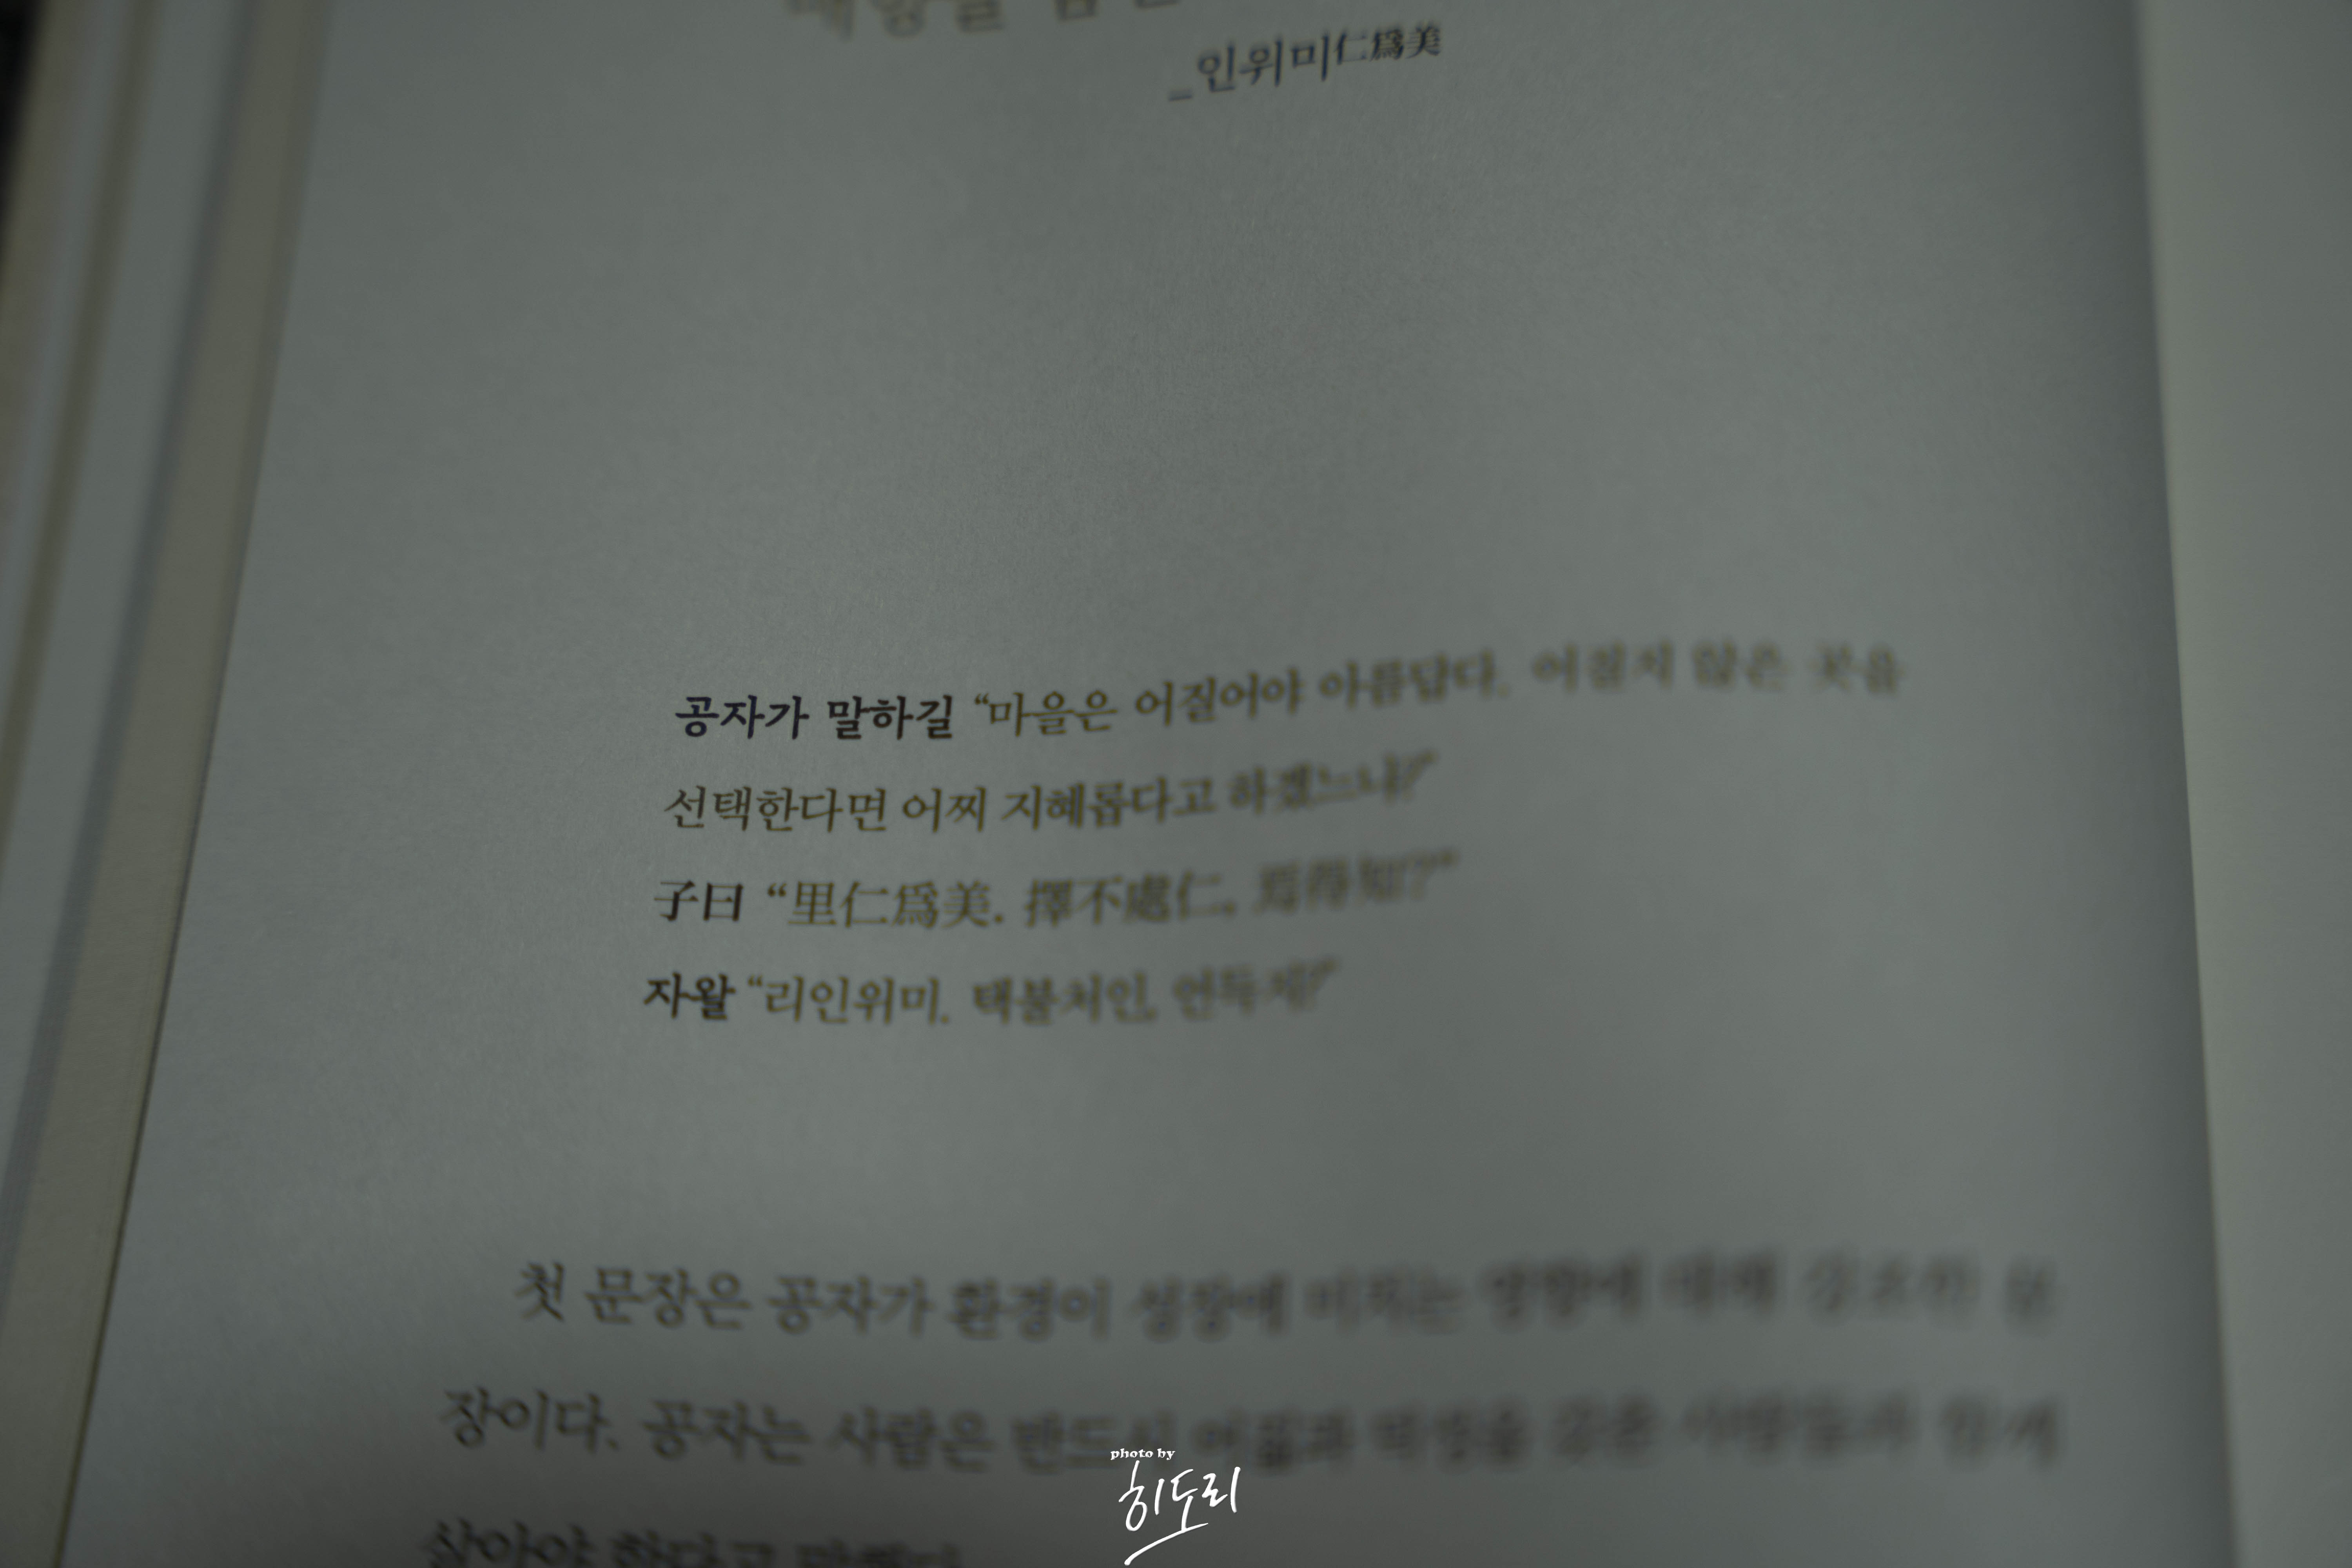 _인위미仁爲美
공자가 말하길 “마을은 어질어야 아름답다. 어질지 않은 곳을
선택한다면 어찌 지혜롭다고 하겠느냐?”
子曰 “里仁爲美. 擇不處仁, 焉得知?”
자왈 “리인위미. 택불처인, 언득지?”
첫 문장은 공자가 환경이 성장에 미치는 영향에 대해 강조한 문
장이다. 공자는 사람은 반드시
살아야 한다고 말했다.
photo by
히도리